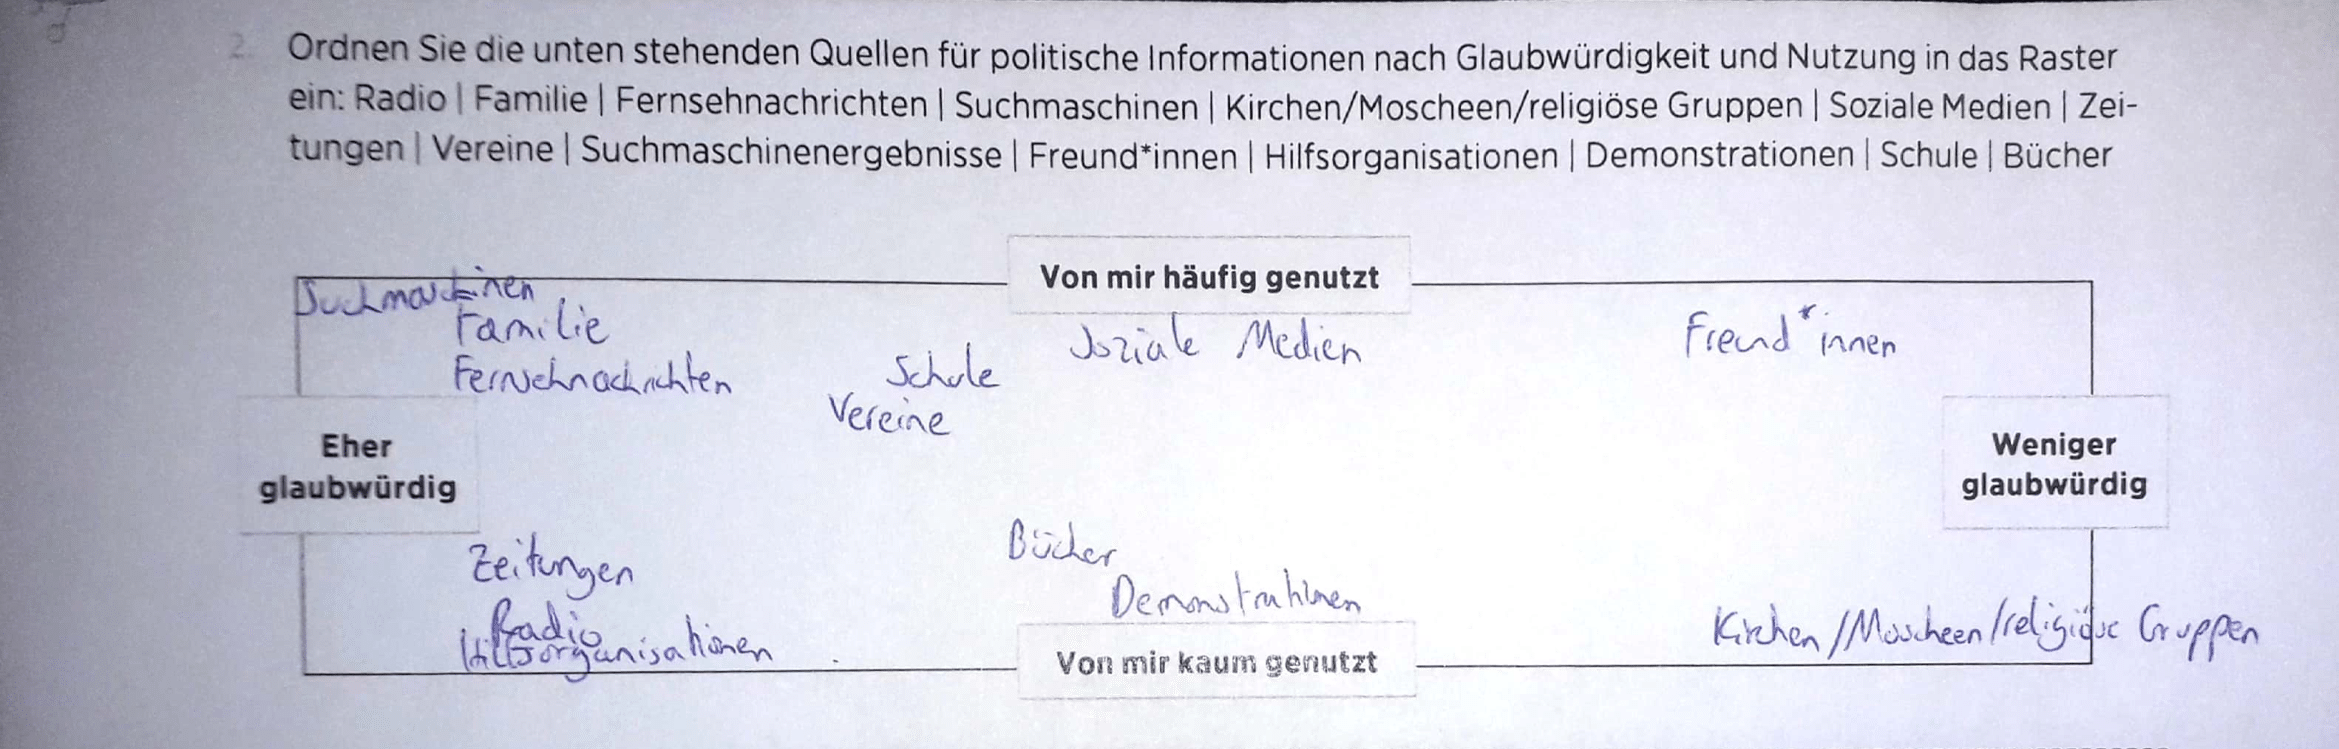 2. Ordnen Sie die unten stehenden Quellen für politische Informationen nach Glaubwürdigkeit und Nutzung in das Raster
ein: Radio | Familie | Fernsehnachrichten | Suchmaschinen | Kirchen/Moscheen/religiöse Gruppen | Soziale Medien | Zei-
tungen | Vereine | Suchmaschinenergebnisse | Freund*innen | Hilfsorganisationen | Demonstrationen | Schule | Bücher
Von mir häufig genutzt
Suchmaschinen
Familie
Soziale Medien
Freund*innen
Fernsehnachrichten
Schule
Vereine
Eher
glaubwürdig
Weniger
glaubwürdig
Zeitungen
Bücher
Demonstrationen
Radio
Hilfsorganisationen
Kirchen/Moscheen/religiöse Gruppen
Von mir kaum genutzt